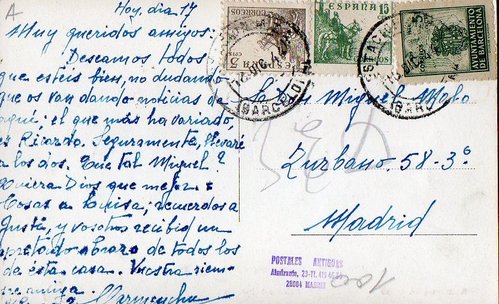 Hoy, dia 17
Muy queridos amigos:
Deseamos todos
que esteis bien, no dudando
que os van dando noticias de
aqui. el que más ha variado,
es Ricardo. Seguramente, llevaré
a los dos. Que tal Miguel?
Quiera Dios que mejore
Cosas a Luisa; recuerdos a
Justa, y vosotros recibid un
apretado abrazo de todos los
de esta casa. Vuestra siem-
pre amiga
Carmencha
CORREOS
5 CTS
ESPAÑA
15
5
AYUNTAMIENTO
DE BARCELONA
(BARCELONA)
(BARCELONA)
Sr. Miguel
Zurbano. 58-3º
Madrid
POSTALES ANTIGUAS
28004 MADRID